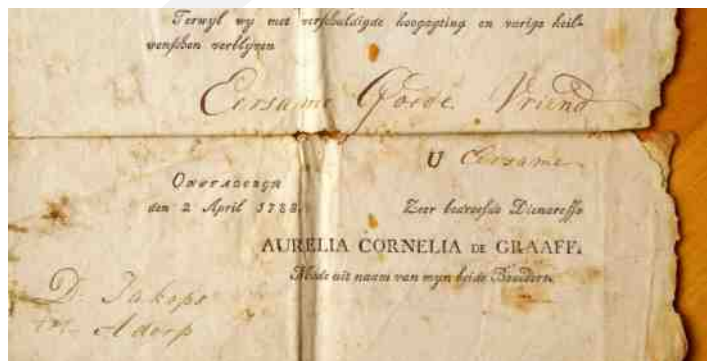 Terwyl wy met verschuldigde hoogagting en varige heil-
wenschen verblyven
Eersame Goede Vriend
U Eersame
den 2 April 1788.
Zeer bedroefde Dienaresse
AURELIA CORNELIA DE GRAAFF.
Mede uit naam van myn beide Broeders.
D. Jakops
Adorp